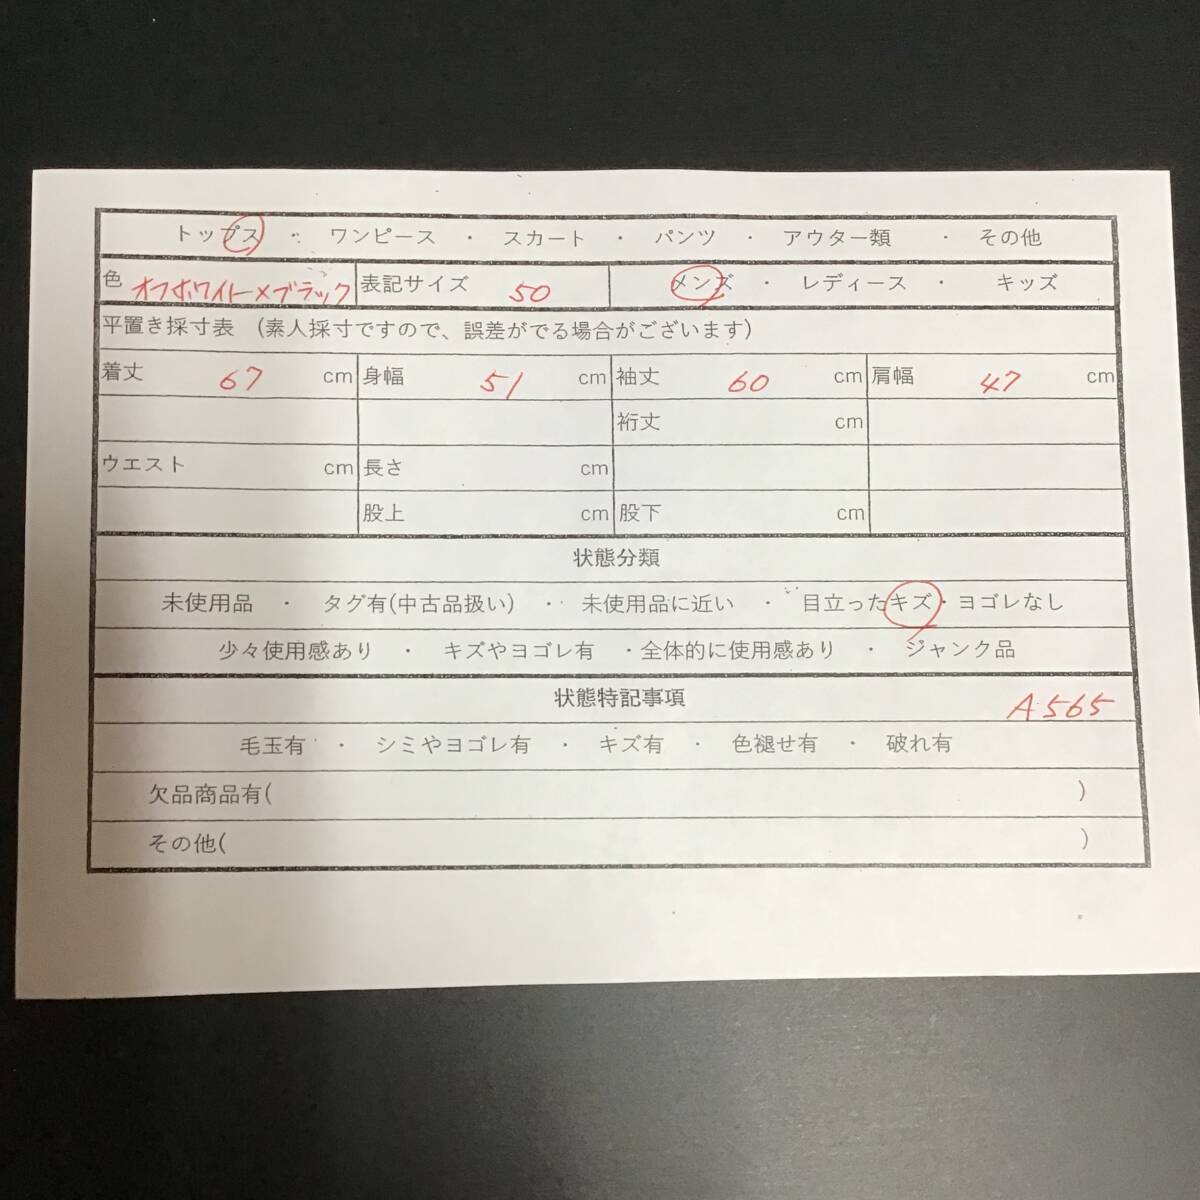 トップス ・ ワンピース ・ スカート ・ パンツ ・ アウター類 ・ その他
色 オフホワイト×ブラック 表記サイズ 50 メンズ ・ レディース ・ キッズ
平置き採寸表 (素人採寸ですので、誤差がでる場合がございます)
着丈 67 cm 身幅 51 cm 袖丈 60 cm 肩幅 47 cm
裄丈 cm
ウエスト cm 長さ cm
股上 cm 股下 cm
状態分類
未使用品 ・ タグ有(中古品扱い) ・ 未使用品に近い ・ 目立ったキズ・ヨゴレなし
少々使用感あり ・ キズやヨゴレ有 ・全体的に使用感あり ・ ジャンク品
状態特記事項 A565
毛玉有 ・ シミやヨゴレ有 ・ キズ有 ・ 色褪せ有 ・ 破れ有
欠品商品有( )
その他( )